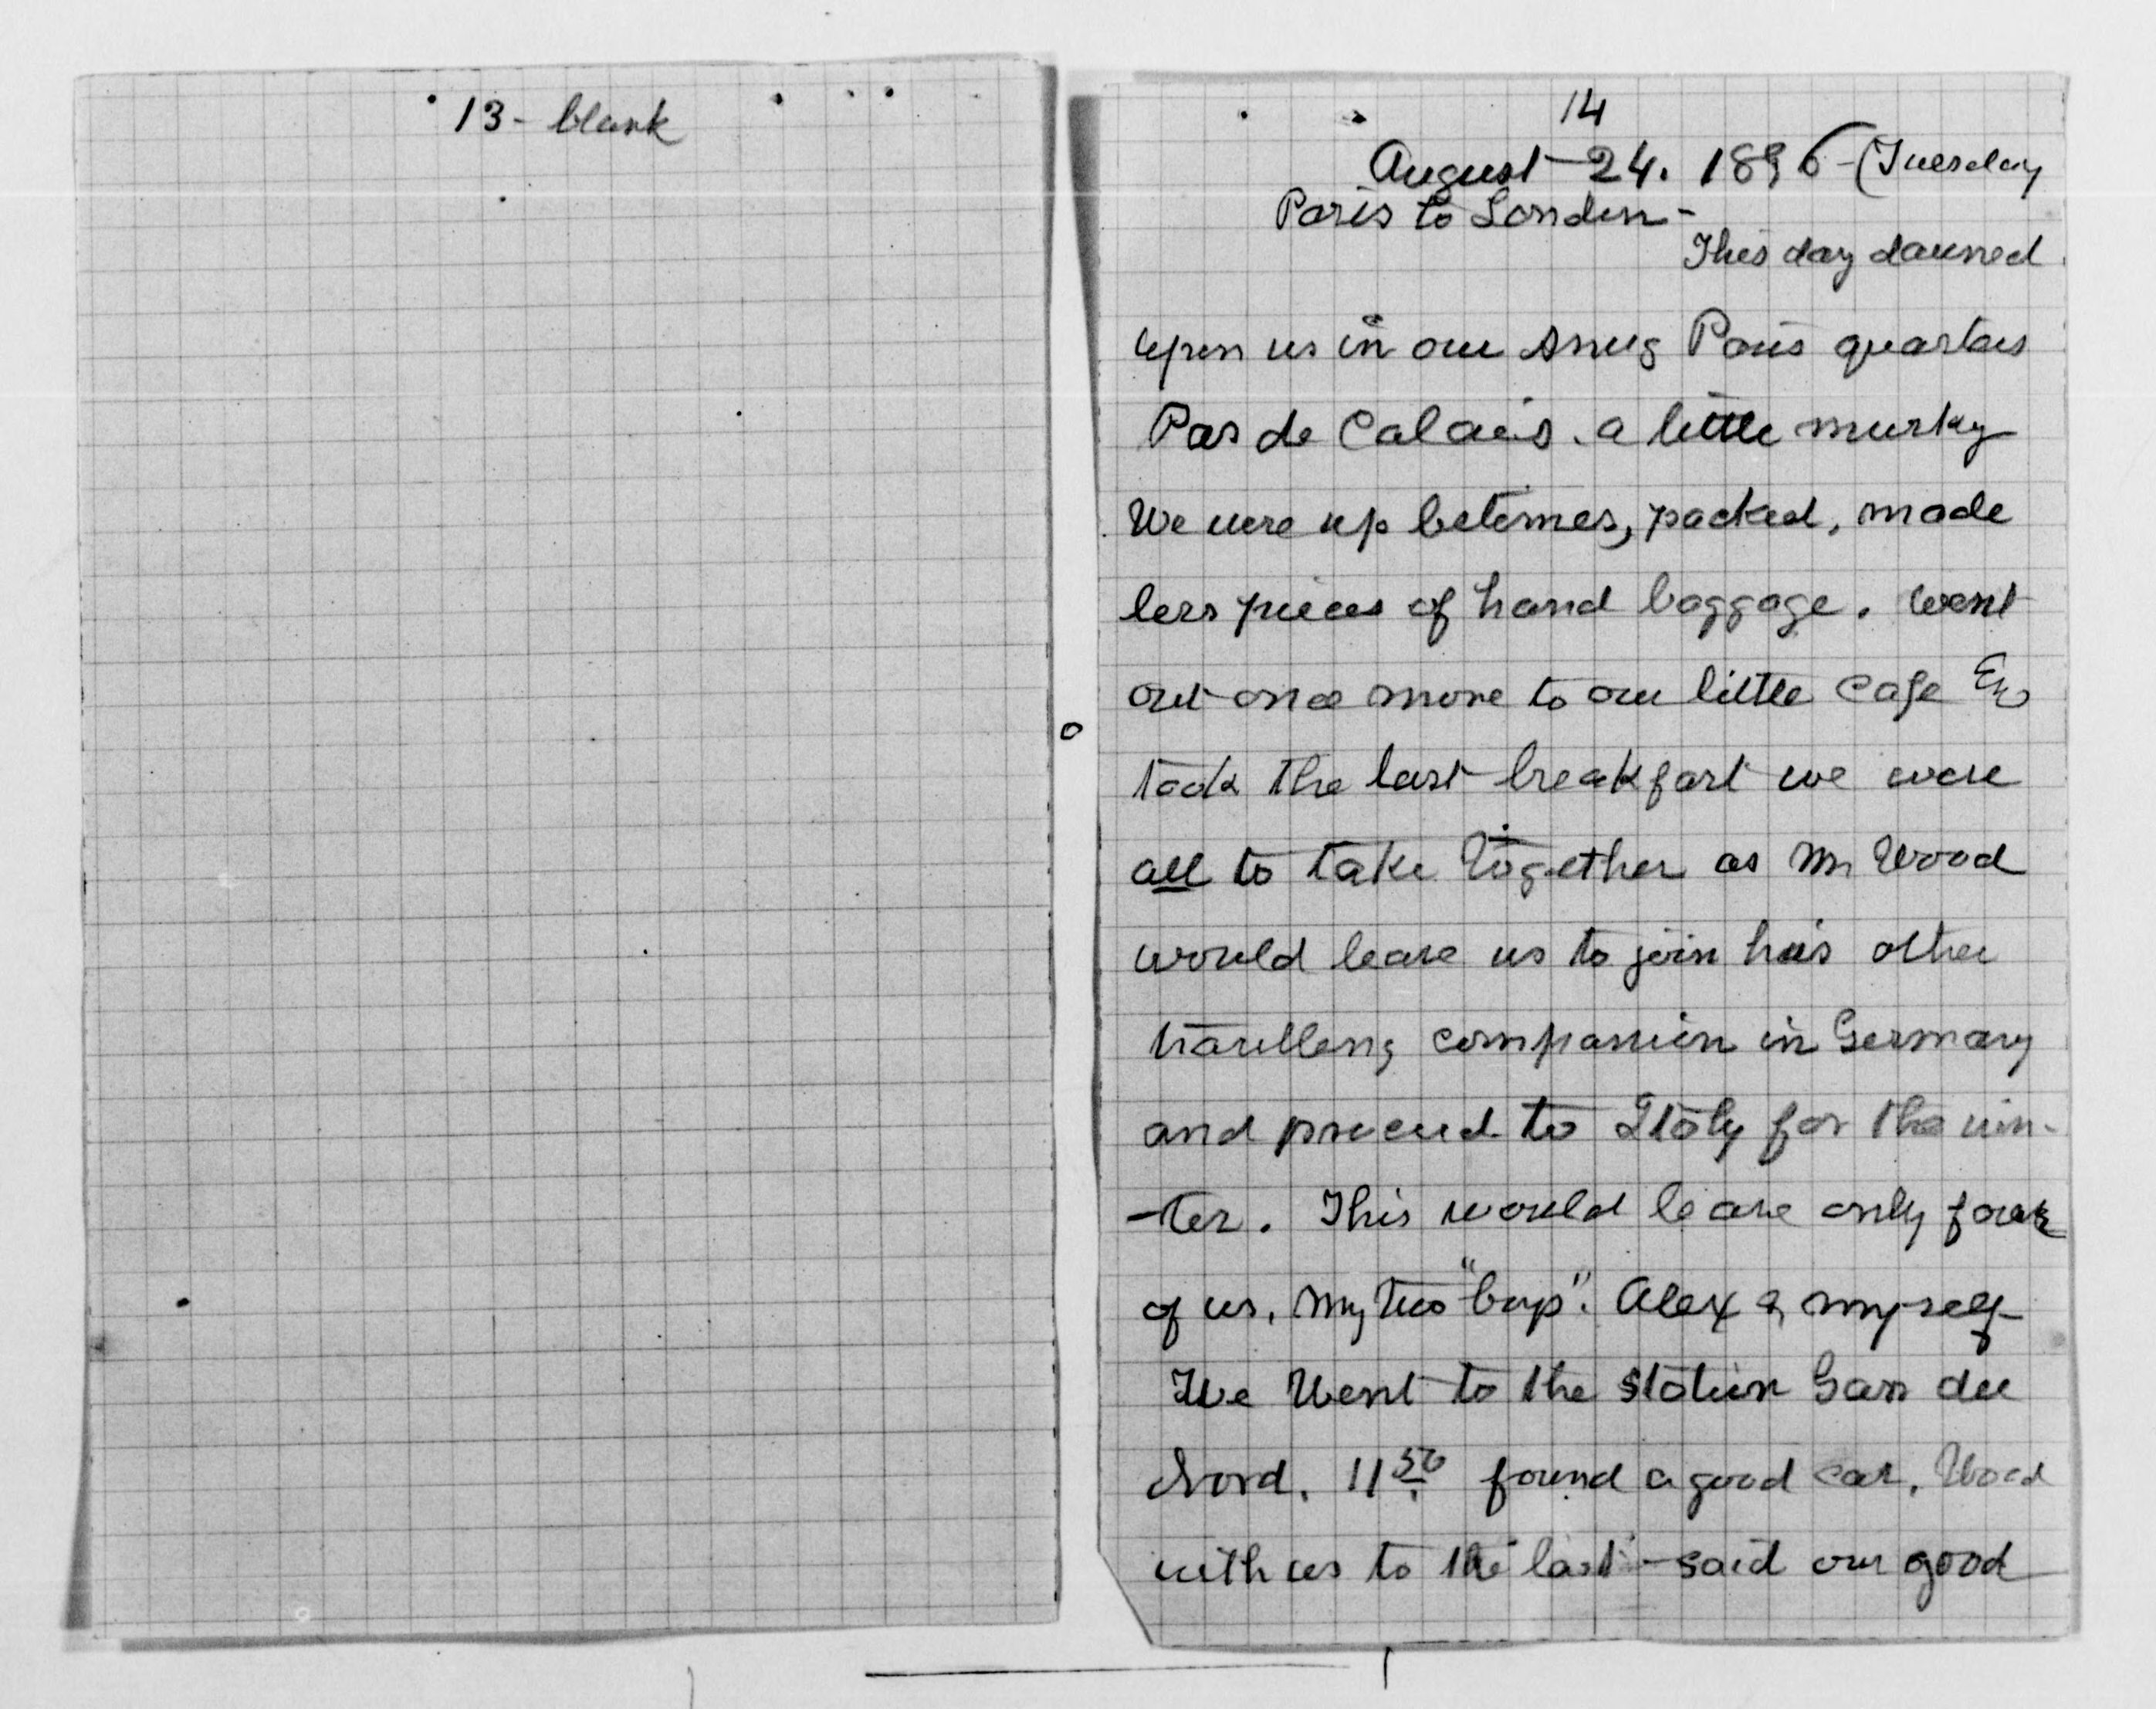 13 - blank
14
August 24. 1896 - (Tuesday
Paris to London -
This day dawned
upon us in our snug Paris quarters
Pas de Calais. a little murky
We were up betimes, packed, made
less pieces of hand baggage. went
out once more to our little cafe &
took the last breakfast we were
all to take together as Mr Wood
would leave us to join his other
travelling companion in Germany
and proceed to Italy for the win-
-ter. This would leave only four
of us, my two "boys". Alex & myself
We Went to the station Gare du
Nord. 11 50 found a good car, Wood
with us to the last - said our good